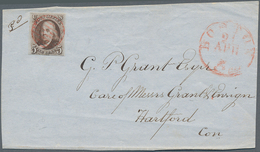 BOSTON
APR
G. P. Grant Esqr
Care of Messrs Grant & Ensign
Hartford
Con